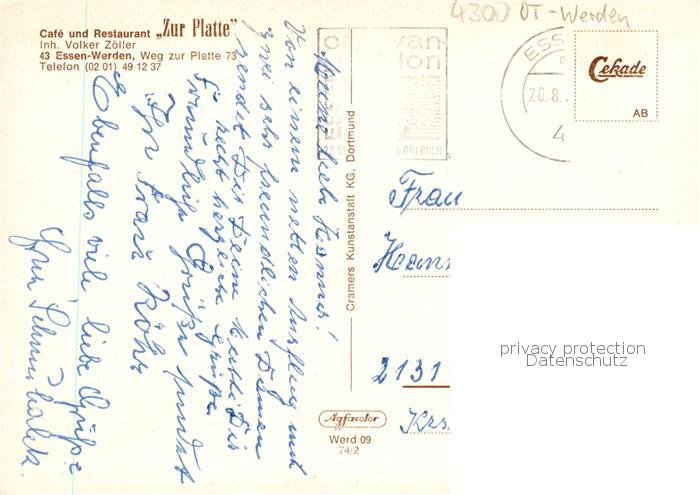 Café und Restaurant „Zur Platte”
Inh. Volker Zöller
43 Essen-Werden, Weg zur Platte 73
Telefon (02 01) 49 12 37
4300 OT-Werden
ESS
20.8.
4
Cekade
AB
Cramers Kunstanstalt KG, Dortmund
Meine liebe Hanne!
Von einem netten Ausflug mit
zwei sehr freundlichen Damen
sendet Dir Deine Mutti Dir
recht herzliche Grüße.
Freundliche Grüße sendet
Ihre Frau Röhr
Ebenfalls viele liebe Grüße
Frau
Hann
2131
Krs.
Agfacolor
Werd 09
74/2
privacy protection
Datenschutz